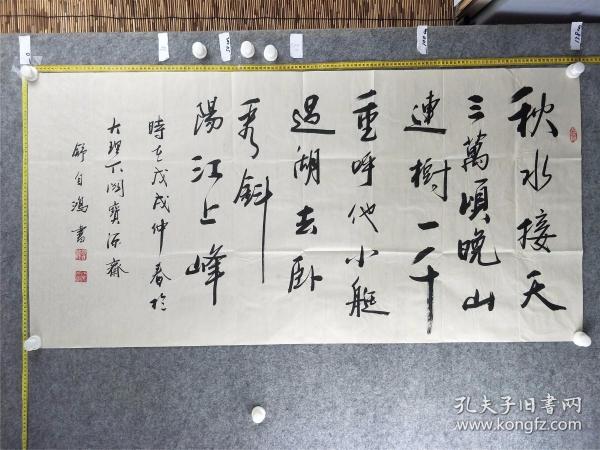 秋水接天
三萬頃晚山
連樹一千
重呼他小艇
過湖去卧
看斜
陽江上峰
時在戊戌仲春於
大理下関寶源齋
舒自鴻書
孔夫子旧书网
www.kongfz.com